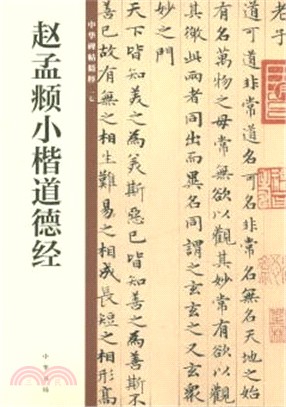 老子
道可道非常道名可名非常名無名天地之始
有名萬物之母常無欲以觀其妙常有欲以觀
其徼此兩者同出而異名同謂之玄玄之又玄衆
妙之門
天下皆知美之為美斯惡已皆知善之為善斯不
善已故有無之相生難易之相成長短之相形高
中华碑帖精粹
赵孟𫖯小楷道德经
中华书局